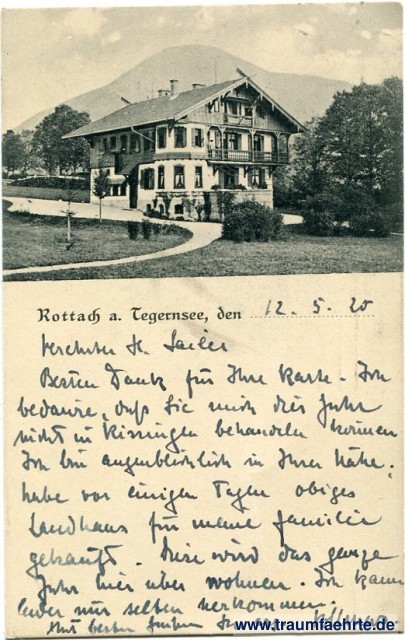 Rottach a. Tegernsee, den 12.5.20
Verehrter H. Sailer
Besten Dank für Ihre Karte. Ich
bedaure, daß Sie mich dies Jahr
nicht in Kissingen behandeln können
Ich bin augenblicklich in Ihrer Nähe,
habe vor einigen Tagen obiges
Landhaus für meine Familie
gekauft. Diese wird das ganze
Jahr hier über wohnen. Ich kann
leider nur selten herkommen.
Mit besten Grüßen
www.traumfaehrte.de